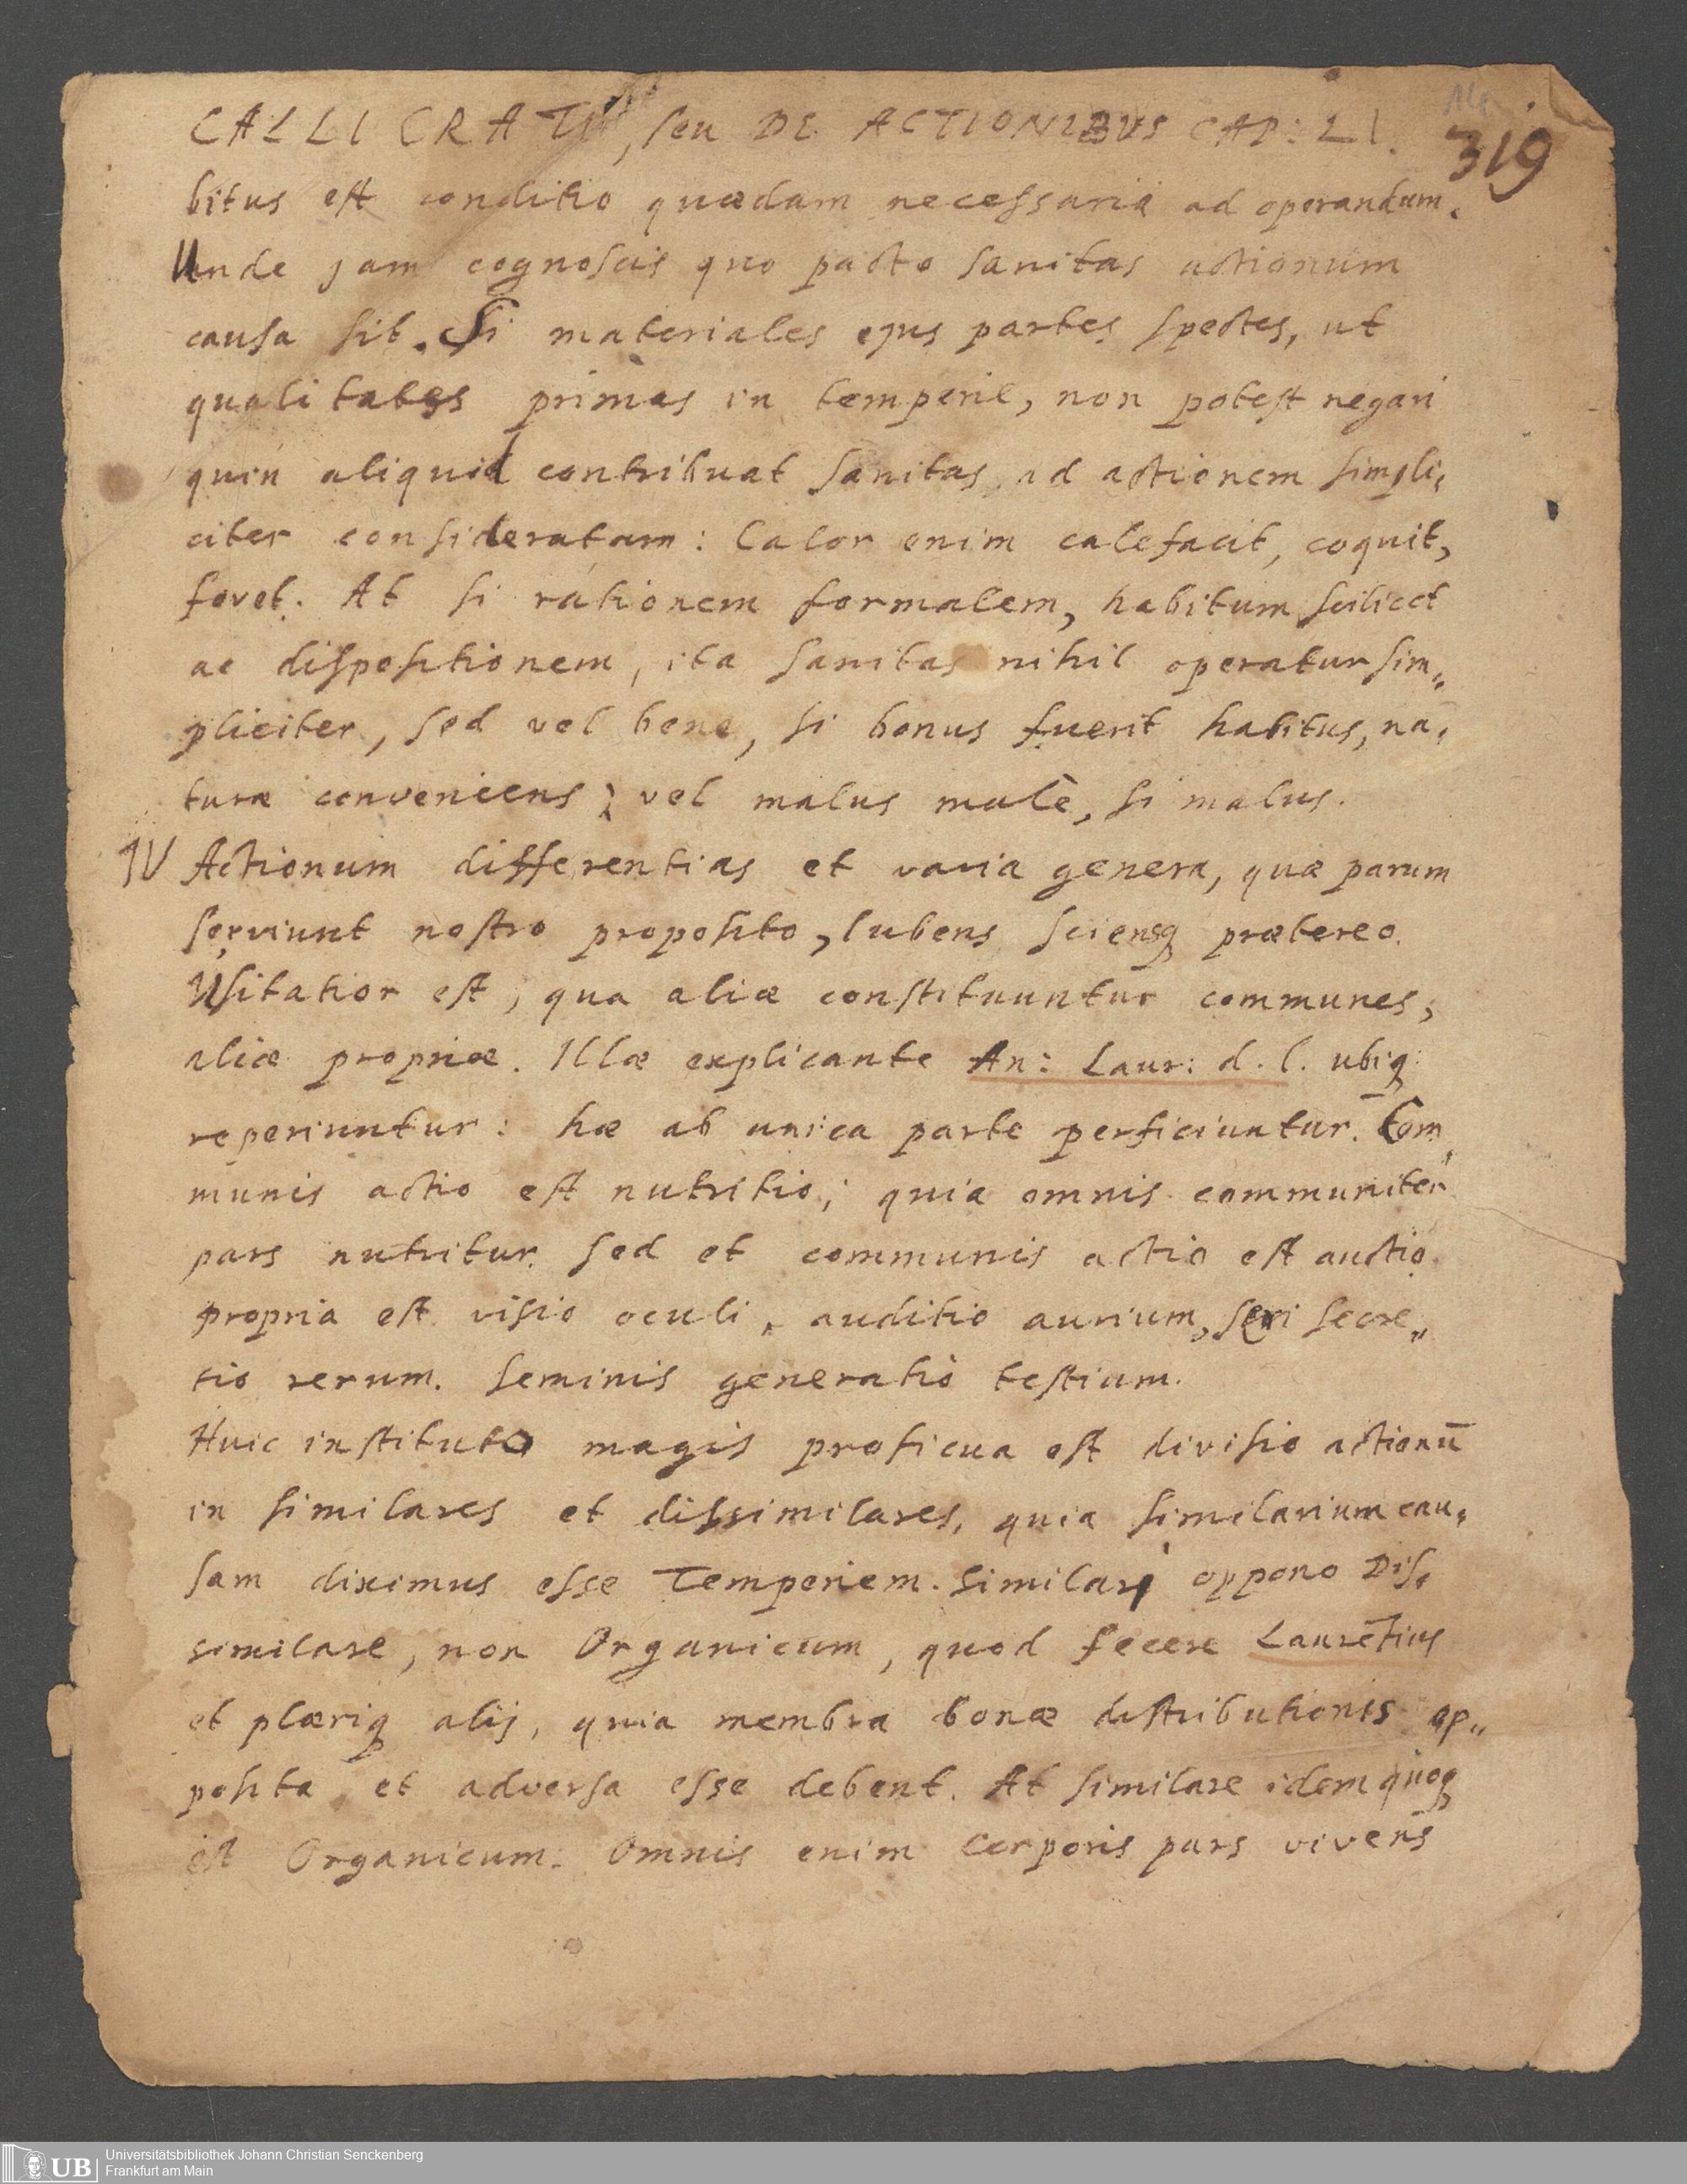 CALLICRAT, seu DE ACTIONIBUS CAP: LI.
319
bitus est conditio quædam necessaria ad operandum.
Unde jam cognoscis quo pacto sanitas actionum
causa sit. Si materiales ejus partes spectes, ut
qualitates primas in temperie, non potest negari
quin aliquid contribuat sanitas ad actionem simpli,
citer consideratam: Calor enim calefacit, coquit,
fovet. At si rationem formalem, habitum scilicet
ac dispositionem, ita sanitas nihil operatur sim„
pliciter, sed vel bene, si bonus fuerit habitus, na,
turæ conveniens; vel malus malè, si malus.
IV Actionum differentias et varia genera, quæ parum
serviunt nostro proposito, lubens sciensq prætereo.
Usitatior est, qua aliæ constituuntur communes,
aliæ propriæ. Illæ explicante An: Laur: d. l. ubiq:
reperiuntur: hæ ab unica parte perficiuntur. Com„
munis actio est nutritio; quia omnis communiter
pars nutritur. sed et communis actio est auctio.
propria est visio oculi, auditio aurium, seri secre„
tio rerum. seminis generatio testium.
Huic instituto magis proficua est divisio actionū
in similares et dissimilares, quia similarium cau,
sam diximus esse Temperiem. similari oppono Dis,
similare, non Organicum, quod fecere Laurētius
et plæriq alij, quia membra bonæ distributionis op„
posita et adversa esse debent. At similare idem quoq
est Organicum. Omnis enim corporis pars vivens
UB
Universitätsbibliothek Johann Christian Senckenberg
Frankfurt am Main